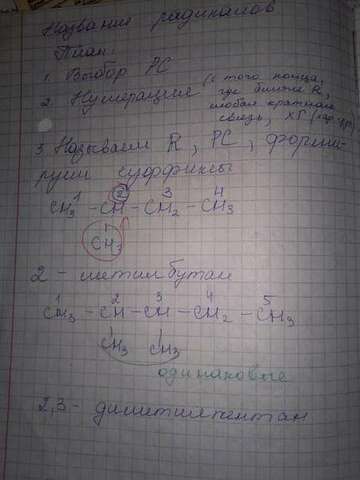 Название радикалов
План:
1. Выбор РС
2. Нумерация (с того конца,
где ближе R,
любая кратная
связь, ХГ
3. Называем R, РС, форми-
руем суффиксы
1 2 3 4
CH3 - CH - CH2 - CH3
CH3
2 - метилбутан
1 2 3 4 5
CH3 - CH - CH - CH2 - CH3
CH3 CH3
одинаковые
2,3 - диметилпентан